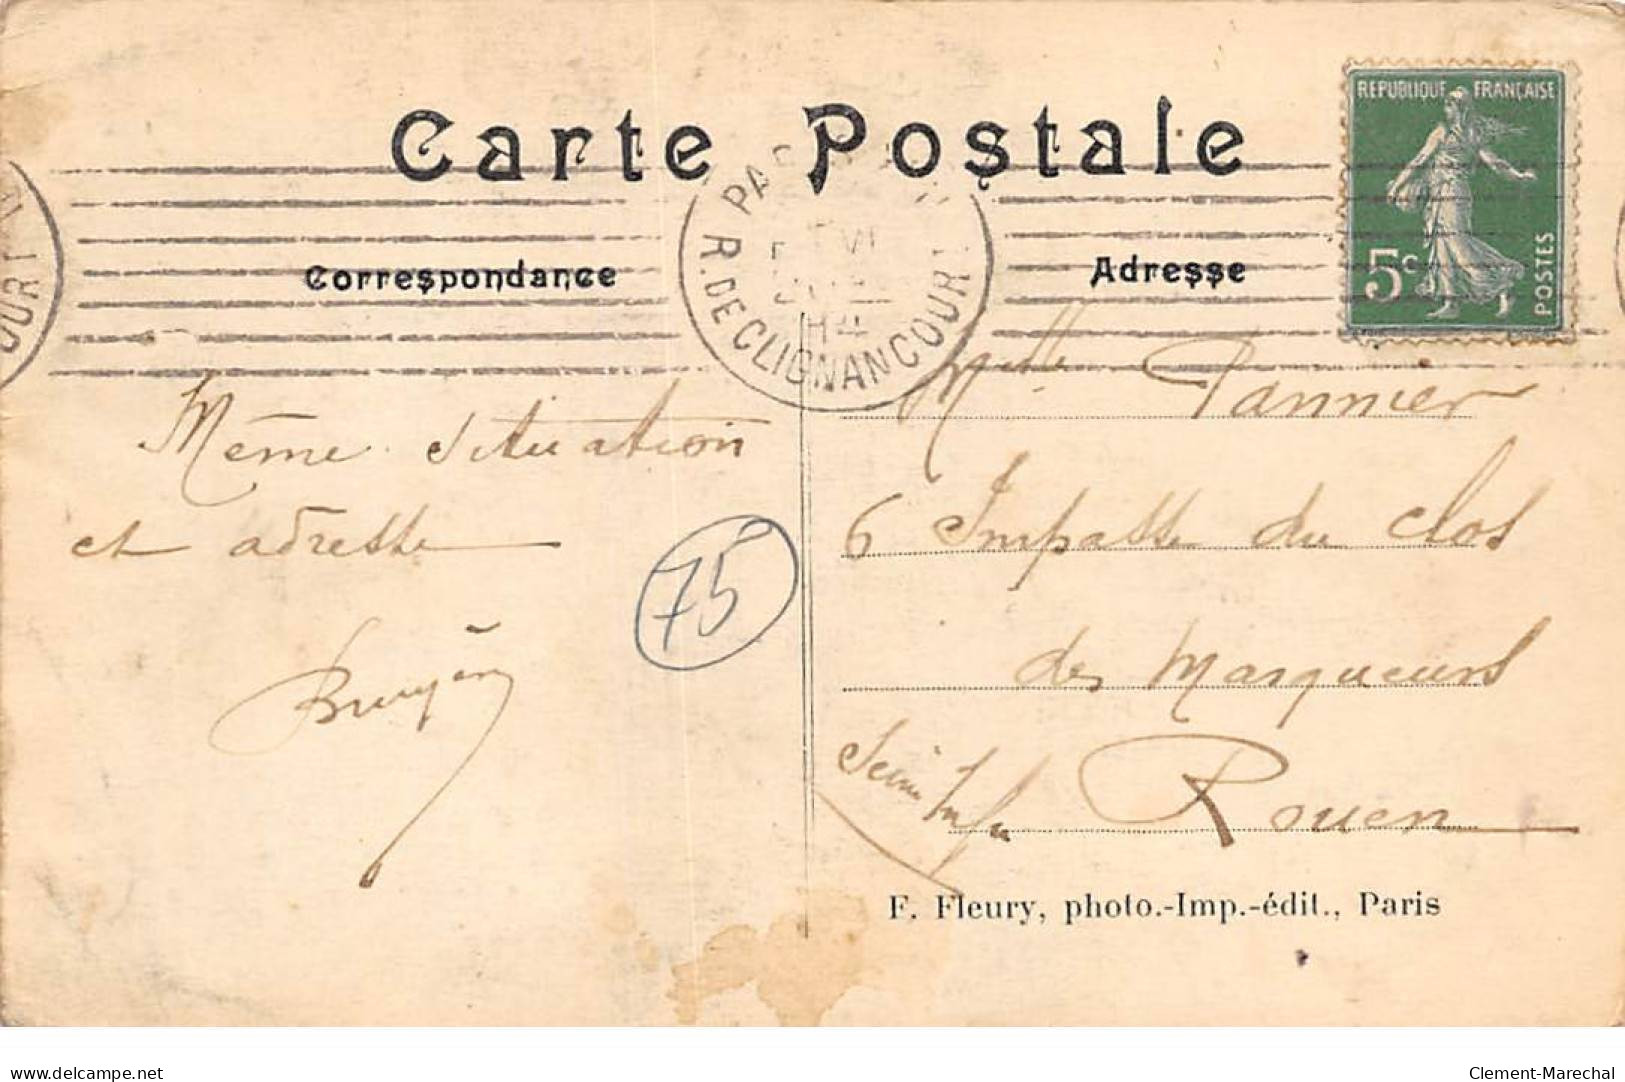 Carte Postale
REPUBLIQUE FRANÇAISE
5c
POSTES
R. DE CLIGNANCOURT
Correspondance
Adresse
Même situation
et adresse
Bruyère
75
Melle Pannier
6 Impasse du Clos
des Marqueurs
Seine Infre Rouen
F. Fleury, photo.-Imp.-édit., Paris
delcampe.net
Clement-Marechal